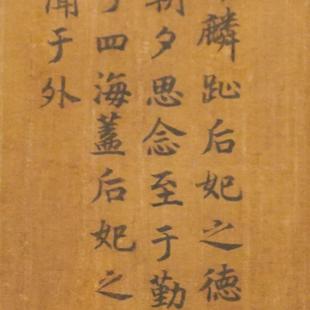 麟趾后妃之德
朝夕思念至于勤
于四海蓋后妃之
聞于外